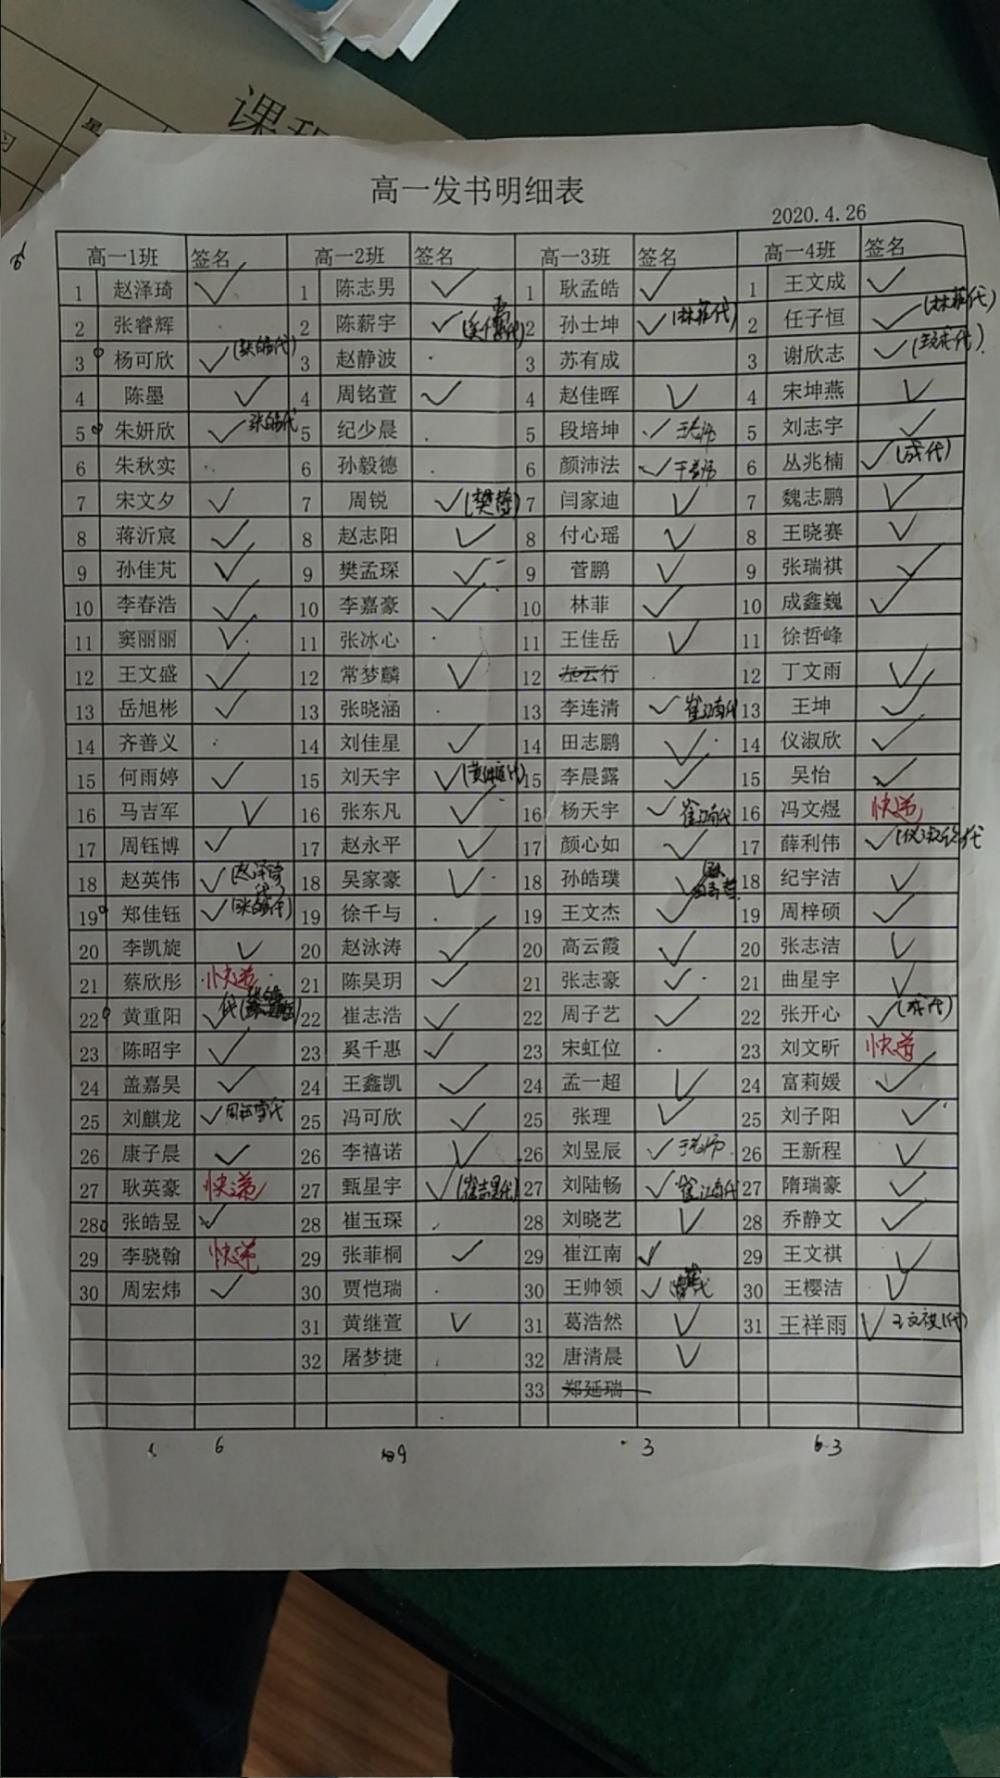 课程
星
习
高一发书明细表
2020.4.26
高一1班 签名 高一2班 签名 高一3班 签名 高一4班 签名
1 赵泽琦 ✓ 1 陈志男 ✓ 1 耿孟皓 ✓ 1 王文成 ✓
2 张睿辉 2 陈薪宇 ✓ 2 孙士坤 ✓(林菲代) 2 任子恒 ✓(林菲代)
3 杨可欣 ✓(张皓代) 3 赵静波 3 苏有成 3 谢欣志 ✓
4 陈墨 ✓ 4 周铭萱 ✓ 4 赵佳晖 ✓ 4 宋坤燕 ✓
5 朱妍欣 ✓张皓代 5 纪少晨 5 段培坤 ✓ 5 刘志宇 ✓
6 朱秋实 6 孙毅德 6 颜沛法 ✓于老师 6 丛兆楠 ✓(成代)
7 宋文夕 ✓ 7 周锐 ✓ 7 闫家迪 ✓ 7 魏志鹏 ✓
8 蒋沂宸 ✓ 8 赵志阳 ✓ 8 付心瑶 ✓ 8 王晓赛 ✓
9 孙佳芃 ✓ 9 樊孟琛 ✓ 9 菅鹏 ✓ 9 张瑞祺 ✓
10 李春浩 ✓ 10 李嘉豪 ✓ 10 林菲 ✓ 10 成鑫巍 ✓
11 窦丽丽 ✓ 11 张冰心 11 王佳岳 ✓ 11 徐哲峰
12 王文盛 ✓ 12 常梦麟 ✓ 12 左云行 12 丁文雨 ✓
13 岳旭彬 ✓ 13 张晓涵 13 李连清 ✓崔江南代 13 王坤 ✓
14 齐善义 14 刘佳星 ✓ 14 田志鹏 ✓ 14 仪淑欣 ✓
15 何雨婷 ✓ 15 刘天宇 ✓(黄继萱代) 15 李晨露 ✓ 15 吴怡 ✓
16 马吉军 ✓ 16 张东凡 ✓ 16 杨天宇 ✓崔江南代 16 冯文煜 快递
17 周钰博 ✓ 17 赵永平 ✓ 17 颜心如 ✓ 17 薛利伟 ✓(仪淑欣代
18 赵英伟 ✓(赵泽琦代) 18 吴家豪 ✓ 18 孙皓璞 ✓ 18 纪宇洁 ✓
19 郑佳钰 ✓(张皓代) 19 徐千与 19 王文杰 ✓ 19 周梓硕 ✓
20 李凯旋 ✓ 20 赵泳涛 ✓ 20 高云霞 ✓ 20 张志洁 ✓
21 蔡欣彤 快递 21 陈昊玥 ✓ 21 张志豪 ✓ 21 曲星宇 ✓
22 黄重阳 ✓ 22 崔志浩 ✓ 22 周子艺 ✓ 22 张开心 ✓(成代)
23 陈昭宇 ✓ 23 奚千惠 ✓ 23 宋虹位 23 刘文昕 快递
24 盖嘉昊 ✓ 24 王鑫凯 ✓ 24 孟一超 ✓ 24 富莉媛 ✓
25 刘麒龙 ✓ 25 冯可欣 ✓ 25 张理 ✓ 25 刘子阳 ✓
26 康子晨 ✓ 26 李禧诺 ✓ 26 刘昱辰 ✓于老师 26 王新程 ✓
27 耿英豪 快递 27 甄星宇 ✓ 27 刘陆畅 ✓崔江南代 27 隋瑞豪 ✓
28 张皓昱 ✓ 28 崔玉琛 28 刘晓艺 ✓ 28 乔静文 ✓
29 李骁翰 快递 29 张菲桐 ✓ 29 崔江南 ✓ 29 王文祺 ✓
30 周宏炜 ✓ 30 贾恺瑞 30 王帅领 ✓ 30 王樱洁 ✓
31 黄继萱 ✓ 31 葛浩然 ✓ 31 王祥雨 ✓王文祺(代)
32 屠梦捷 32 唐清晨 ✓
33 郑延瑞
6 9 3 3